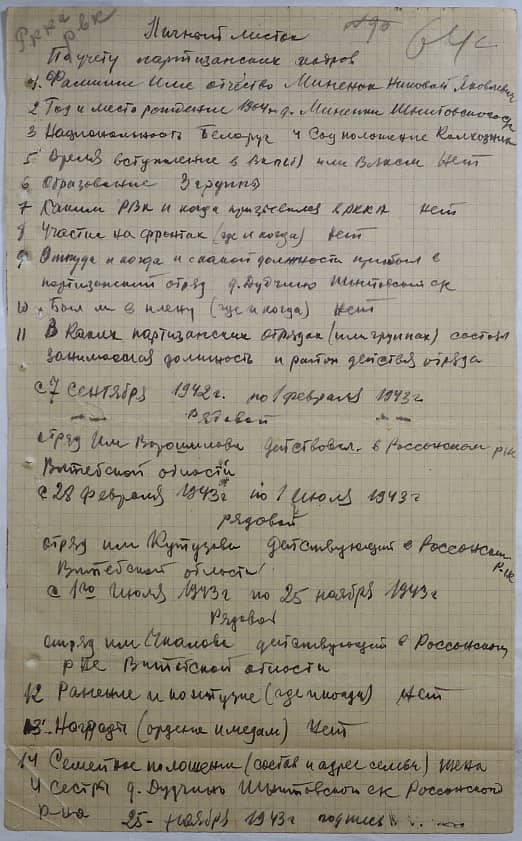 РККА РВК
Личный листок №90 64с
По учету партизанских кадров
1. Фамилия Имя отчество Миненок Николай Яковлевич
2 Год и место рождения 1904 г. д. Миненки Шнитовского с/с
3 Национальность Беларус 4 Соц положение Колхозник
5 Время вступления в ВКП(б) или ВЛКСМ Нет
6 Образование 3 группы
7 Каким РВК и когда призывался в РККА нет
8 Участие на фронтах (где и когда) нет
9 Откуда и когда и с какой должности прибыл в
партизанский отряд д. Дудчино Шнитовский с/с
10. Был ли в плену (где и когда) Нет
11 В каких партизанских отрядах (или группах) состоял
занимаемая должность и район действия отряда
с 7 сентября 1942 г. по 1 февраля 1943 г
Рядовой
отряд Им Ворошилова действовал в Россонском р-не
Витебской области
с 28 февраля 1943 г по 1 июля 1943 г
рядовой
отряд им Кутузова действующий в Россонском
р-не
Витебской области
с 1го Июля 1943 г по 25 ноября 1943 г
Рядовой
отряд им Чкалова действующий в Россонском
р не Витебской области
12 Ранение и контузие (где и когда) нет
13. Награды (ордена и медали) Нет
14 Семейное положение (состав и адрес семьи) жена
4 сестры д. Дудчино Шнитовский с/с Россонского
р-на 25 ноября 1943 г подпись